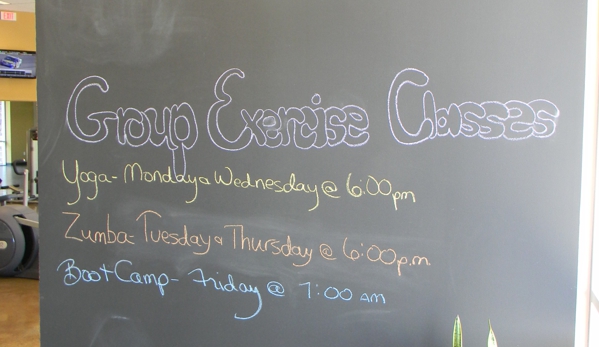 Group Exercise Classes
Yoga- Monday & Wednesday @ 6:00pm
Zumba- Tuesday & Thursday @ 6:00p.m
Boot Camp- Friday @ 7:00 am